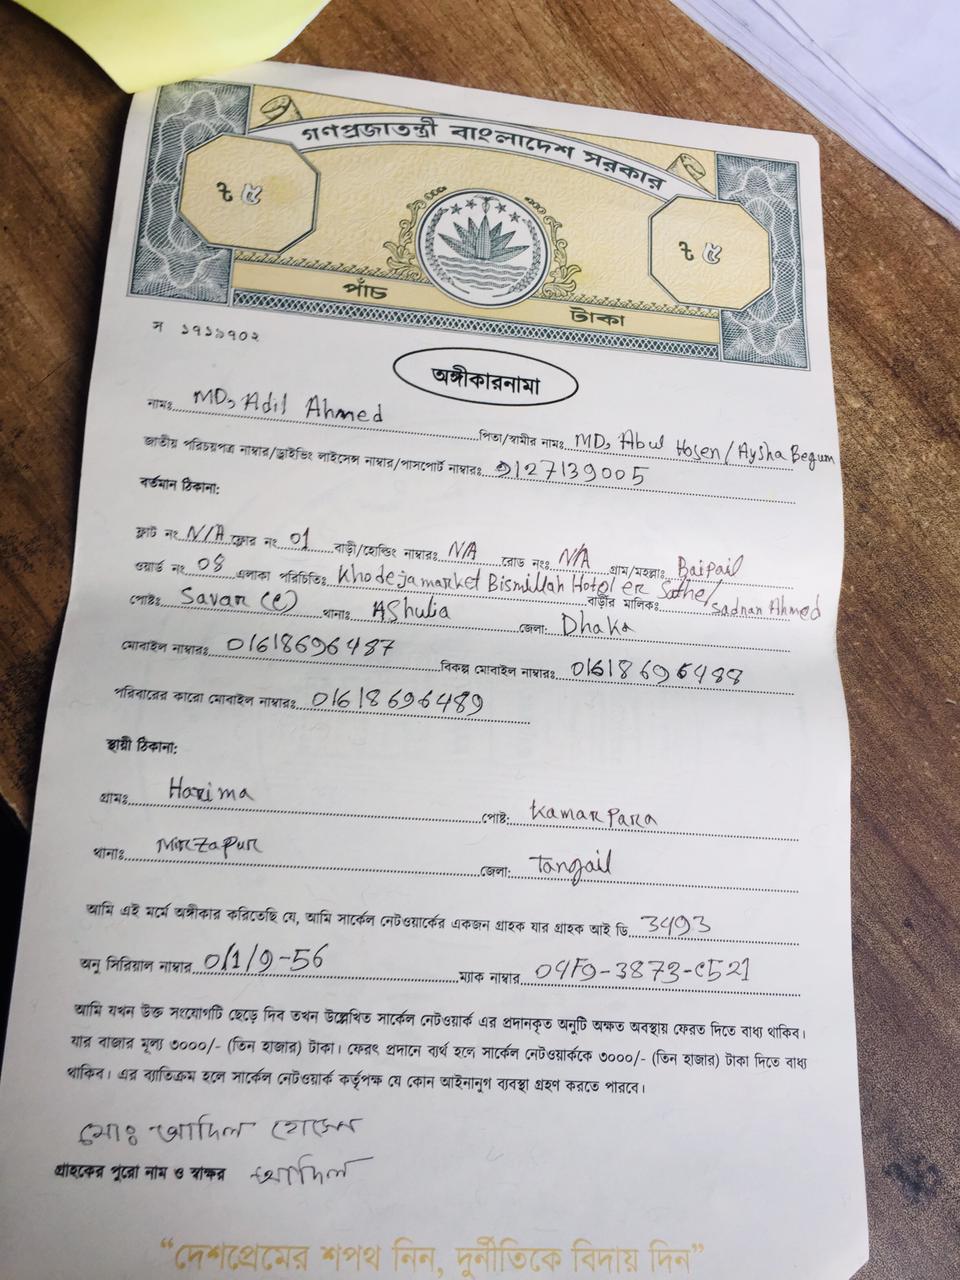 গণপ্রজাতন্ত্রী বাংলাদেশ সরকার
৳ ৫
৳ ৫
পাঁচ টাকা
স ১৭১৯৭০২
অঙ্গীকারনামা
নামঃ MD, Adil Ahmed পিতা/স্বামীর নামঃ MD, Abul Hosen/Aysha Begum
জাতীয় পরিচয়পত্র নাম্বার/ড্রাইভিং লাইসেন্স নাম্বার/পাসপোর্ট নাম্বারঃ 9127139005
বর্তমান ঠিকানা:
ফ্লাট নং N/A ফ্লোর নং 01 বাড়ী/হোল্ডিং নাম্বারঃ N/A রোড নংঃ N/A গ্রাম/মহল্লাঃ Baipail
ওয়ার্ড নং 08 এলাকা পরিচিতিঃ Khodejamarket Bismillah Hotel er Sathe/ বাড়ীর মালিকঃ Sadnan Ahmed
পোষ্টঃ Savar (c) থানাঃ AShulia জেলা: Dhaka
মোবাইল নাম্বারঃ 01618696487 বিকল্প মোবাইল নাম্বারঃ 01618696488
পরিবারের কারো মোবাইল নাম্বারঃ 01618696489
স্থায়ী ঠিকানা:
গ্রামঃ Harima পোষ্ট: Kamar Para
থানাঃ Mirzapur জেলা: Tangail
আমি এই মর্মে অঙ্গীকার করিতেছি যে, আমি সার্কেল নেটওয়ার্কের একজন গ্রাহক যার গ্রাহক আই ডি 3493
অনু সিরিয়াল নাম্বার 0/1/9-56 ম্যাক নাম্বার 04F9-3873-c521
আমি যখন উক্ত সংযোগটি ছেড়ে দিব তখন উল্লেখিত সার্কেল নেটওয়ার্ক এর প্রদানকৃত অনুটি অক্ষত অবস্থায় ফেরত দিতে বাধ্য থাকিব।
যার বাজার মূল্য ৩০০০/- (তিন হাজার) টাকা। ফেরৎ প্রদানে ব্যর্থ হলে সার্কেল নেটওয়ার্ককে ৩০০০/- (তিন হাজার) টাকা দিতে বাধ্য
থাকিব। এর ব্যতিক্রম হলে সার্কেল নেটওয়ার্ক কর্তৃপক্ষ যে কোন আইনানুগ ব্যবস্থা গ্রহণ করতে পারবে।
মোঃ আদিল হোসেন
গ্রাহকের পুরো নাম ও স্বাক্ষর আদিল
“দেশপ্রেমের শপথ নিন, দুর্নীতিকে বিদায় দিন”